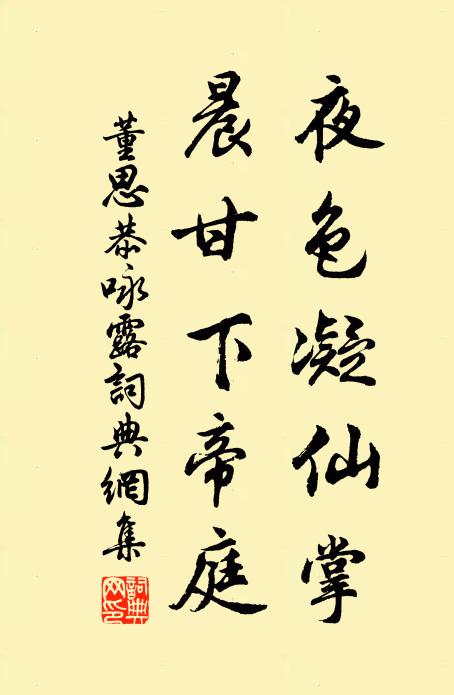 夜色凝仙掌
晨甘下帝庭
董思恭咏露詞典網集
詞典网印